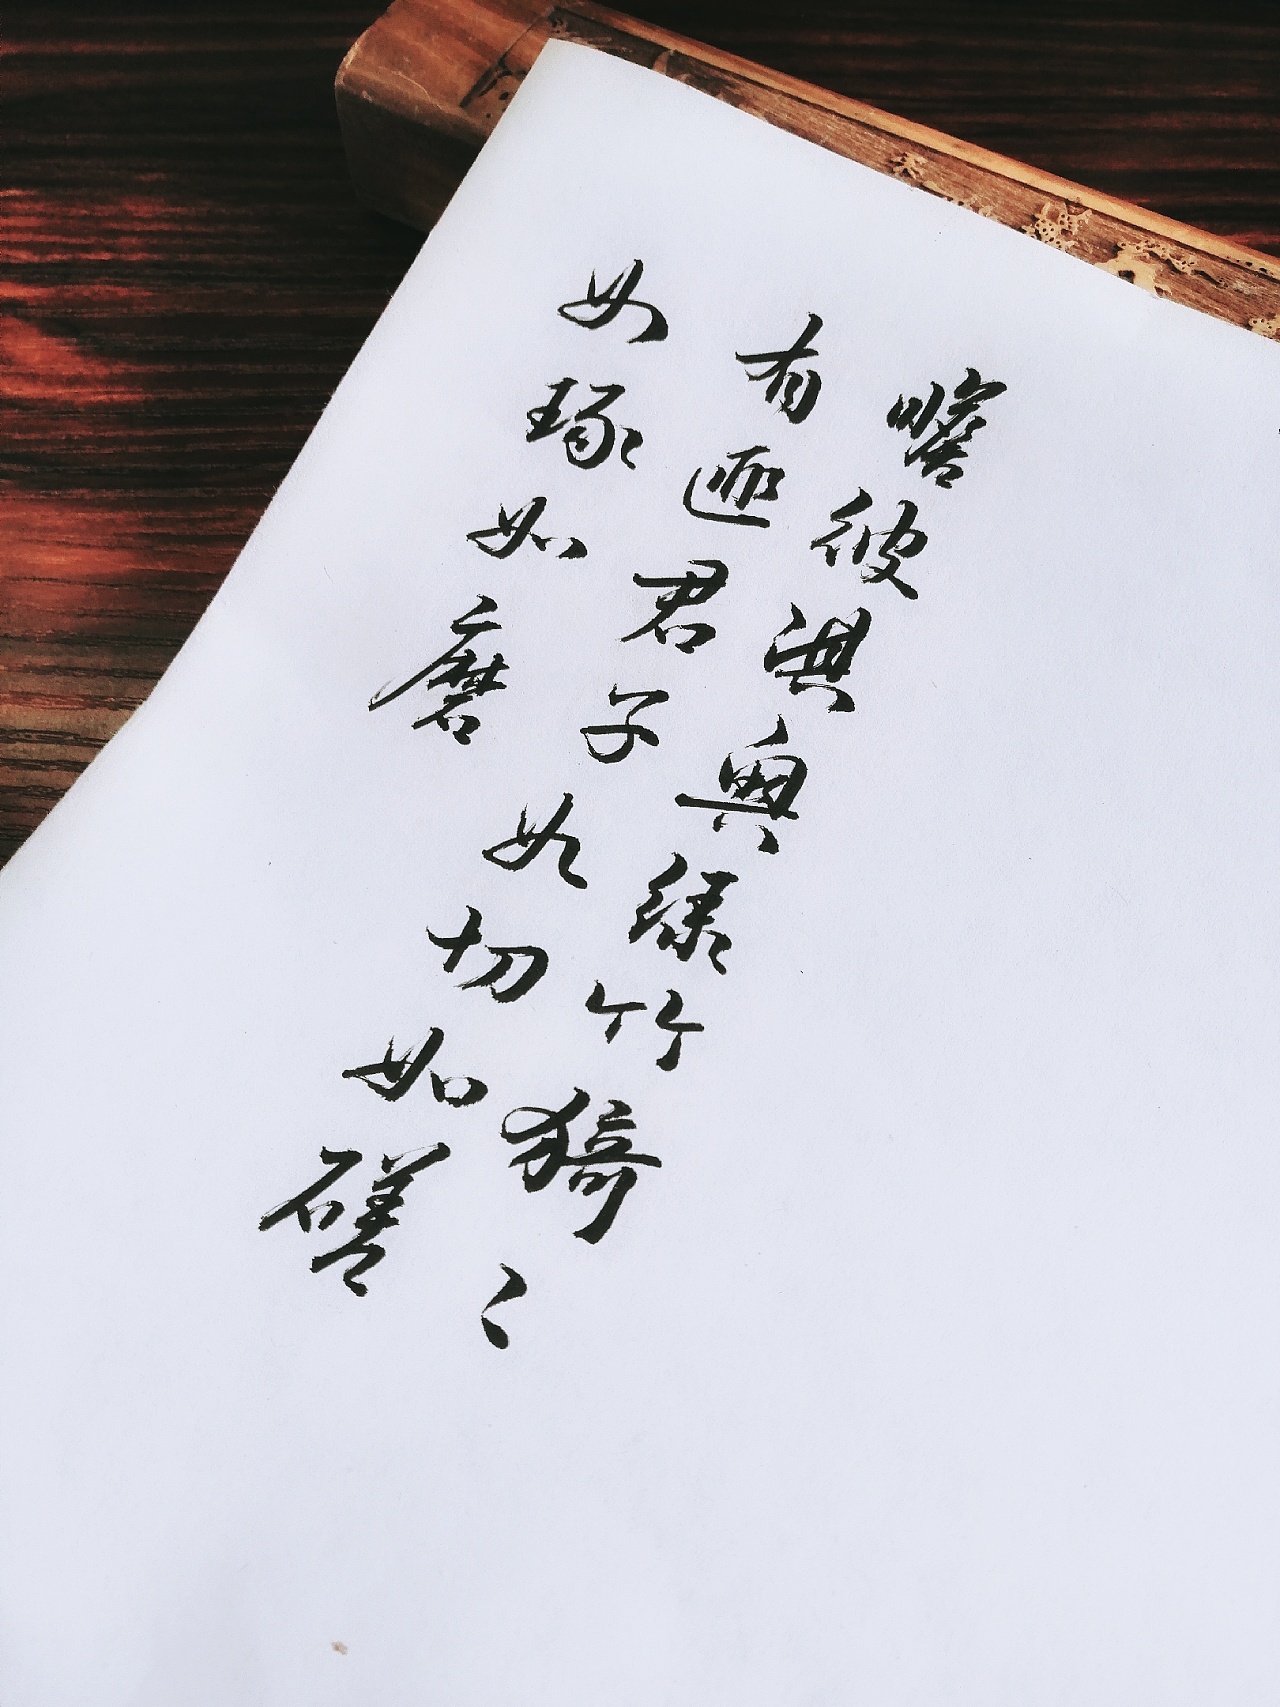 瞻彼淇奥绿竹猗〻
有匪君子如切如磋
如琢如磨